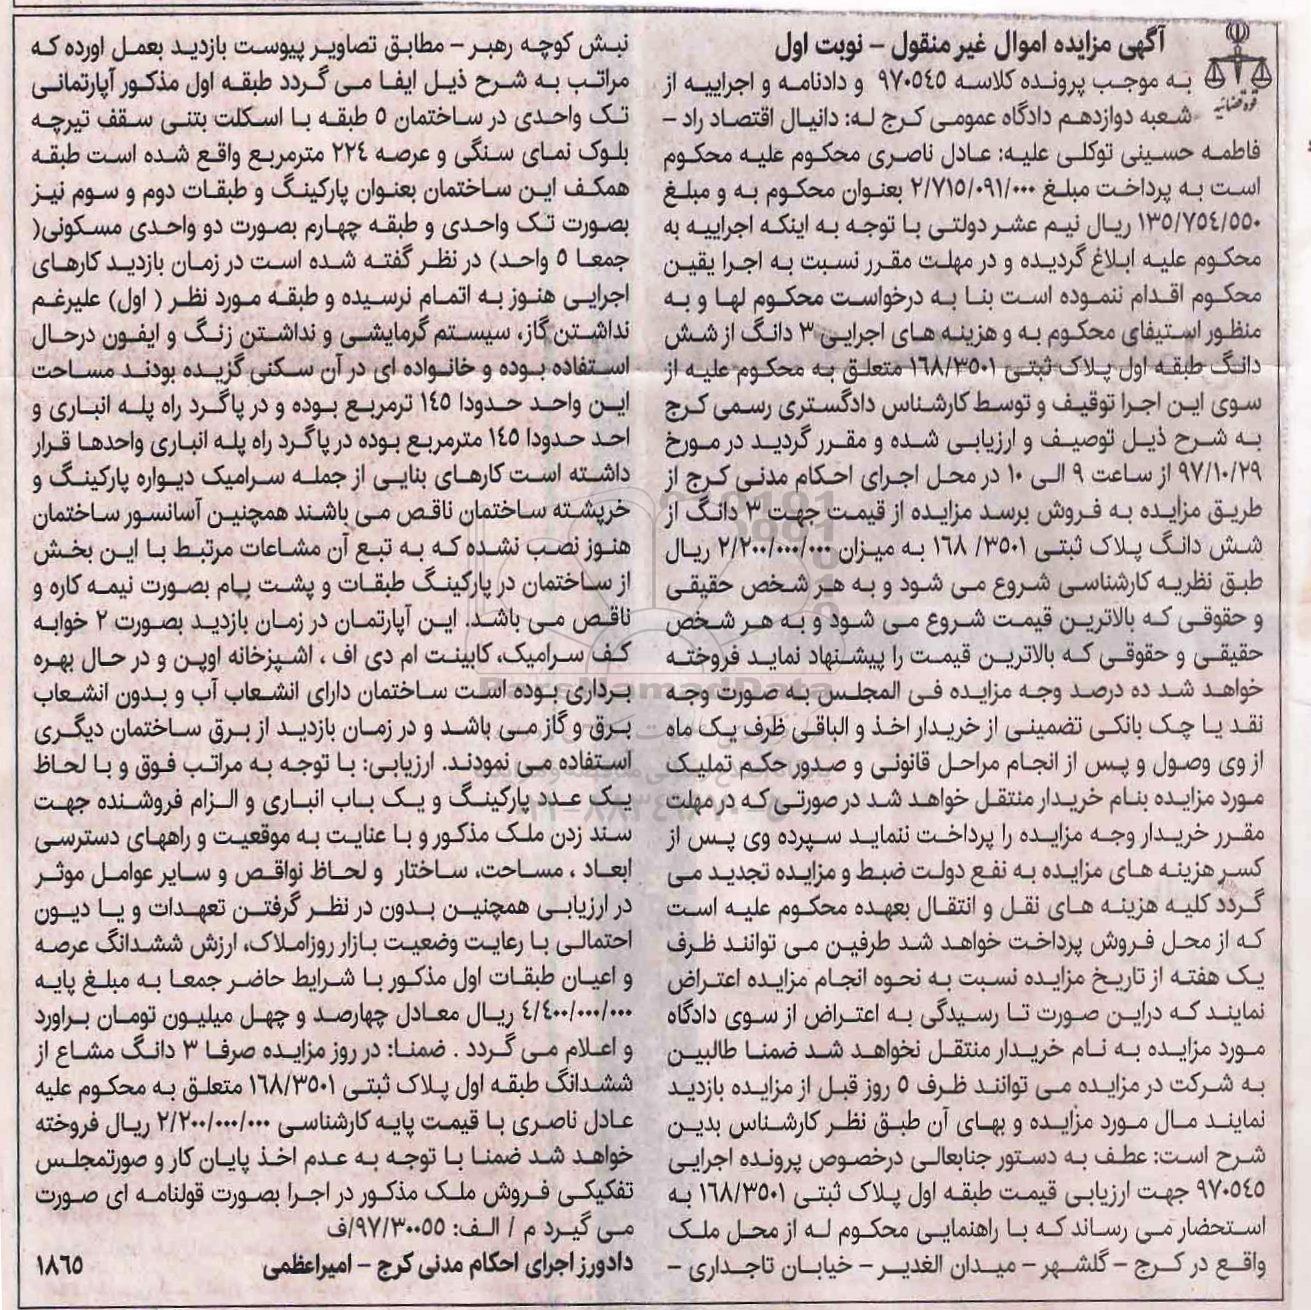 آگهی مزایده اموال غیر منقول – نوبت اول
به موجب پرونده کلاسه ۹۷۰۵٤۵ و دادنامه و اجراییه از
شعبه دوازدهم دادگاه عمومی کرج له: دانیال اقتصاد راد –
فاطمه حسینی توکلی علیه: عادل ناصری محکوم علیه محکوم
است به پرداخت مبلغ ۲/۷۱۵/۰۹۱/۰۰۰ بعنوان محکوم به و مبلغ
۱۳۵/۷۵٤/۵۵۰ ریال نیم عشر دولتی با توجه به اینکه اجراییه به
محکوم علیه ابلاغ گردیده و در مهلت مقرر نسبت به اجرا یقین
محکوم اقدام ننموده است بنا به درخواست محکوم لها و به
منظور استیفای محکوم به و هزینه های اجرایی ۳ دانگ از شش
دانگ طبقه اول پلاک ثبتی ۱٦۸/۳۵۰۱ متعلق به محکوم علیه از
سوی این اجرا توقیف و توسط کارشناس دادگستری رسمی کرج
به شرح ذیل توصیف و ارزیابی شده و مقرر گردید در مورخ
۹۷/۱۰/۲۹ از ساعت ۹ الی ۱۰ در محل اجرای احکام مدنی کرج از
طریق مزایده به فروش برسد مزایده از قیمت جهت ۳ دانگ از
شش دانگ پلاک ثبتی ۳۵۰۱/ ۱٦۸ به میزان ۲/۲۰۰/۰۰۰/۰۰۰ ریال
طبق نظریه کارشناسی شروع می شود و به هر شخص حقیقی
و حقوقی که بالاترین قیمت شروع می شود و به هر شخص
حقیقی و حقوقی که بالاترین قیمت را پیشنهاد نماید فروخته
خواهد شد ده درصد وجه مزایده فی المجلس به صورت وجه
نقد یا چک بانکی تضمینی از خریدار اخذ و الباقی ظرف یک ماه
از وی وصول و پس از انجام مراحل قانونی و صدور حکم تملیک
مورد مزایده بنام خریدار منتقل خواهد شد در صورتی که در مهلت
مقرر خریدار وجه مزایده را پرداخت ننماید سپرده وی پس از
کسر هزینه های مزایده به نفع دولت ضبط و مزایده تجدید می
گردد کلیه هزینه های نقل و انتقال بعهده محکوم علیه است
که از محل فروش پرداخت خواهد شد طرفین می توانند ظرف
یک هفته از تاریخ مزایده نسبت به نحوه انجام مزایده اعتراض
نمایند که دراین صورت تا رسیدگی به اعتراض از سوی دادگاه
مورد مزایده به نام خریدار منتقل نخواهد شد ضمنا طالبین
به شرکت در مزایده می توانند ظرف ۵ روز قبل از مزایده بازدید
نمایند مال مورد مزایده و بهای آن طبق نظر کارشناس بدین
شرح است: عطف به دستور جنابعالی درخصوص پرونده اجرایی
۹۷۰۵٤۵ جهت ارزیابی قیمت طبقه اول پلاک ثبتی ۱٦۸/۳۵۰۱ به
استحضار می رساند که با راهنمایی محکوم له از محل ملک
واقع در کرج – گلشهر – میدان الغدیر – خیابان تاجداری –
نبش کوچه رهبر – مطابق تصاویر پیوست بازدید بعمل اورده که
مراتب به شرح ذیل ایفا می گردد طبقه اول مذکور آپارتمانی
تک واحدی در ساختمان ۵ طبقه با اسکلت بتنی سقف تیرچه
بلوک نمای سنگی و عرصه ۲۲٤ مترمربع واقع شده است طبقه
همکف این ساختمان بعنوان پارکینگ و طبقات دوم و سوم نیز
بصورت تک واحدی و طبقه چهارم بصورت دو واحدی مسکونی(
جمعا ۵ واحد) در نظر گفته شده است در زمان بازدید کارهای
اجرایی هنوز به اتمام نرسیده و طبقه مورد نظر ( اول) علیرغم
نداشتن گاز، سیستم گرمایشی و نداشتن زنگ و ایفون درحال
استفاده بوده و خانواده ای در آن سکنی گزیده بودند مساحت
این واحد حدودا ۱٤۵ ترمربع بوده و در پاگرد راه پله انباری و
احد حدودا ۱٤۵ مترمربع بوده در پاگرد راه پله انباری واحدها قرار
داشته است کارهای بنایی از جمله سرامیک دیواره پارکینگ و
خرپشته ساختمان ناقص می باشند همچنین آسانسور ساختمان
هنوز نصب نشده که به تبع آن مشاعات مرتبط با این بخش
از ساختمان در پارکینگ طبقات و پشت بام بصورت نیمه کاره و
ناقص می باشد. این آپارتمان در زمان بازدید بصورت ۲ خوابه
کف سرامیک، کابینت ام دی اف ، اشپزخانه اوپن و در حال بهره
برداری بوده است ساختمان دارای انشعاب آب و بدون انشعاب
برق و گاز می باشد و در زمان بازدید از برق ساختمان دیگری
استفاده می نمودند. ارزیابی: با توجه به مراتب فوق و با لحاظ
یک عدد پارکینگ و یک باب انباری و الزام فروشنده جهت
سند زدن ملک مذکور و با عنایت به موقعیت و راههای دسترسی
ابعاد ، مساحت، ساختار و لحاظ نواقص و سایر عوامل موثر
در ارزیابی همچنین بدون در نظر گرفتن تعهدات و یا دیون
احتمالی با رعایت وضعیت بازار روزاملاک، ارزش ششدانگ عرصه
و اعیان طبقات اول مذکور با شرایط حاضر جمعا به مبلغ پایه
٤/٤۰۰/۰۰۰/۰۰۰ ریال معادل چهارصد و چهل میلیون تومان براورد
و اعلام می گردد . ضمنا: در روز مزایده صرفا ۳ دانگ مشاع از
ششدانگ طبقه اول پلاک ثبتی ۱٦۸/۳۵۰۱ متعلق به محکوم علیه
عادل ناصری با قیمت پایه کارشناسی ۲/۲۰۰/۰۰۰/۰۰۰ ریال فروخته
خواهد شد ضمنا با توجه به عدم اخذ پایان کار و صورتمجلس
تفکیکی فروش ملک مذکور در اجرا بصورت قولنامه ای صورت
می گیرد م / الف: ۹۷/۳۰۰۵۵/ف
دادورز اجرای احکام مدنی کرج – امیراعظمی ۱۸٦۵
قوه قضائیه
ParsNamadData